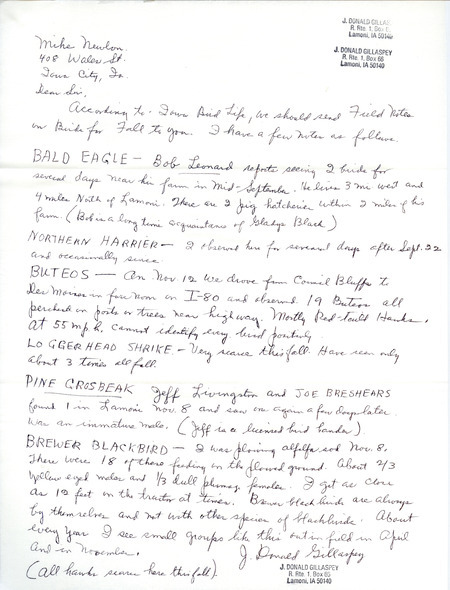 J. DONALD GILLAS
R. Rte. 1, Box
Lamoni, IA 50140
J. DONALD GILLASPEY
R. Rte. 1, Box 66
Lamoni, IA 50140
Mike Newlon
408 Wales St.
Iowa City, Ia.
Dear Sir,
According to Iowa Bird Life, we should send Field Notes
on Birds for Fall to you. I have a few notes as follows.
BALD EAGLE - Bob Leonard reports seeing 2 birds for
several days near his farm in Mid-September. He lives 3 mi west and
4 miles North of Lamoni. There are 2 pig hatcheries within 2 miles of his
farm. (Bob is a long time acquaintance of Gladys Black)
NORTHERN HARRIER - 2 observed here for several days after Sept. 22
and occasionally since
BUTEOS - On Nov. 12 we drove from Council Bluffs to
Des Moines in forenoon on I-80 and observed 19 Buteos all
perched on posts or trees near highway. Mostly Red-tail'd Hawks.
At 55 mph. cannot identify every bird positively
LOGGERHEAD SHRIKE - Very scarce this fall. Have seen only
about 3 times all fall.
PINE GROSBEAK Jeff Livingston and JOE BRESHEARS
found 1 in Lamoni Nov. 8 and saw one again a few days later.
Was an immature male. (Jeff is a licensed bird bander)
BREWER BLACKBIRD - I was plowing alfalfa sod Nov. 8.
There were 18 of these feeding on the plowed ground. About 2/3
yellow eyed males and 1/3 dull plumag females. I get as close
as 12 feet on the tractor at times. Brewer blackbirds are always
by themselves and not with other species of blackbirds. About
every year I see small groups like this out in field in April
and in November.
J. Donald Gillaspey
(All hawks scarce here this fall).
J. DONALD GILLASPEY
R. Rte. 1, Box 66
Lamoni, IA 50140